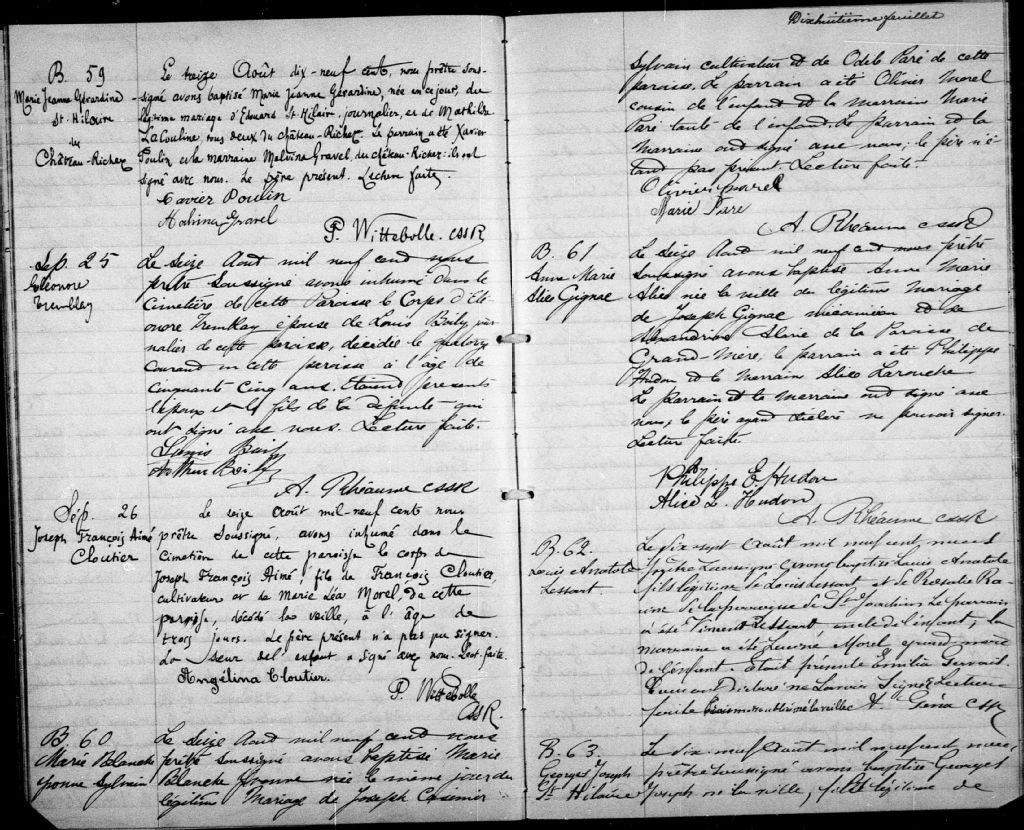 B. 59
Marie Jeanne Gérardine
St-Hilaire
du
Château-Richer
Le treize Août dix-neuf cent, nous prêtre sous-
signé avons baptisé Marie Jeanne Gérardine, née en ce jour, du
légitime mariage d'Edouard St-Hilaire, journalier, et de Mathilde
Lacouline, tous deux du château-Richer. Le parrain a été Xavier
Poulin et la marraine Malvina Gravel, du château-Richer: ils ont
signé avec nous. Le père présent. Lecture faite
Xavier Poulin
Malvina Gravel
P. Wittebolle. CSSR
Sep. 25
Eléonore
Tremblay
Le seize Aout mil neuf cent nous
prêtre soussigné avons inhumé dans le
cimetière de cette Paroisse le Corps d'Elé-
onore Tremblay épouse de Louis Boily, jour-
nalier de cette paroisse, décédée le quatorze
courant en cette paroisse à l'âge de
cinquante cinq ans. Etaient présents
l'époux et le fils de la défunte qui
ont signé avec nous. Lecture faite.
Louis Boily
Arthur Boily
A. Rhéaume CSSR
Sép. 26
Joseph François Aimé
Cloutier
Le seize Août mil neuf cent nous
prêtre soussigné, avons inhumé dans le
cimetière de cette paroisse le corps de
Joseph François Aimé, fils de François Cloutier,
cultivateur et de Marie Léa Morel, de cette
paroisse, décédé la veille, à l'âge de
trois jours. Le père présent n'a pas pu signer.
La sœur de l'enfant a signé avec nous. Lect. faite.
Angélina Cloutier.
P. Wittebolle
CSSR.
B 60
Marie Blanche
Yvonne Sylvain
Le seize Aout mil neuf cent nous
prêtre soussigné avons baptisé Marie
Blanche Yvonne née le même jour du
légitime Mariage de Joseph Casimir
Dixhuitième feuillet
Sylvain cultivateur et de Odele Paré de cette
paroisse. Le parrain a été Olivier Morel
cousin de l'enfant et la marraine Marie
Paré tante de l'enfant. Le parrain et la
Marraine ont signé avec nous; le père n'é-
tant pas présent Lecture faite.
Olivier Morel
Marie Paré
A. Rhéaume CSSR
B. 61
Anne Marie
Alice Gignac
Le seize Aout mil neuf cent nous prêtre
soussigné avons baptisé Anne Marie
Alice née la veille du légitime mariage
de Joseph Gignac mécanicien et de
Alexandrine Alarie de la Paroisse de
Grand-Mère; le parrain a été Philippe
Hudon et la Marraine Alice Larouche
Le parrain et la Marraine ont signé avec
nous, le père ayant déclaré ne pouvoir signer.
Lecture faite.
Philippe E Hudon
Alice L. Hudon
A. Rhéaume CSSR
B. 62.
Louis Anatole
Lessart.
Le dix sept Août mil neuf cent nous
prêtre soussigné avons baptisé Louis Anatole
fils légitime de Louis Lessart et de Rosalie Ra-
cine de la paroisse de St Joachim Le parrain
a été Vincent Lessart oncle de l'enfant; la
marraine a été Morel grand mère
de l'enfant. Etait présente Emilia Gervail.
déclaré ne savoir signer Lecture
faite la veille A. Géna CSSR
B. 63.
Georges Joseph
St Hilaire
Le dix neuf Août mil neuf cent nous,
prêtre soussigné avons baptisé Georges
Joseph né la veille, fils légitime de